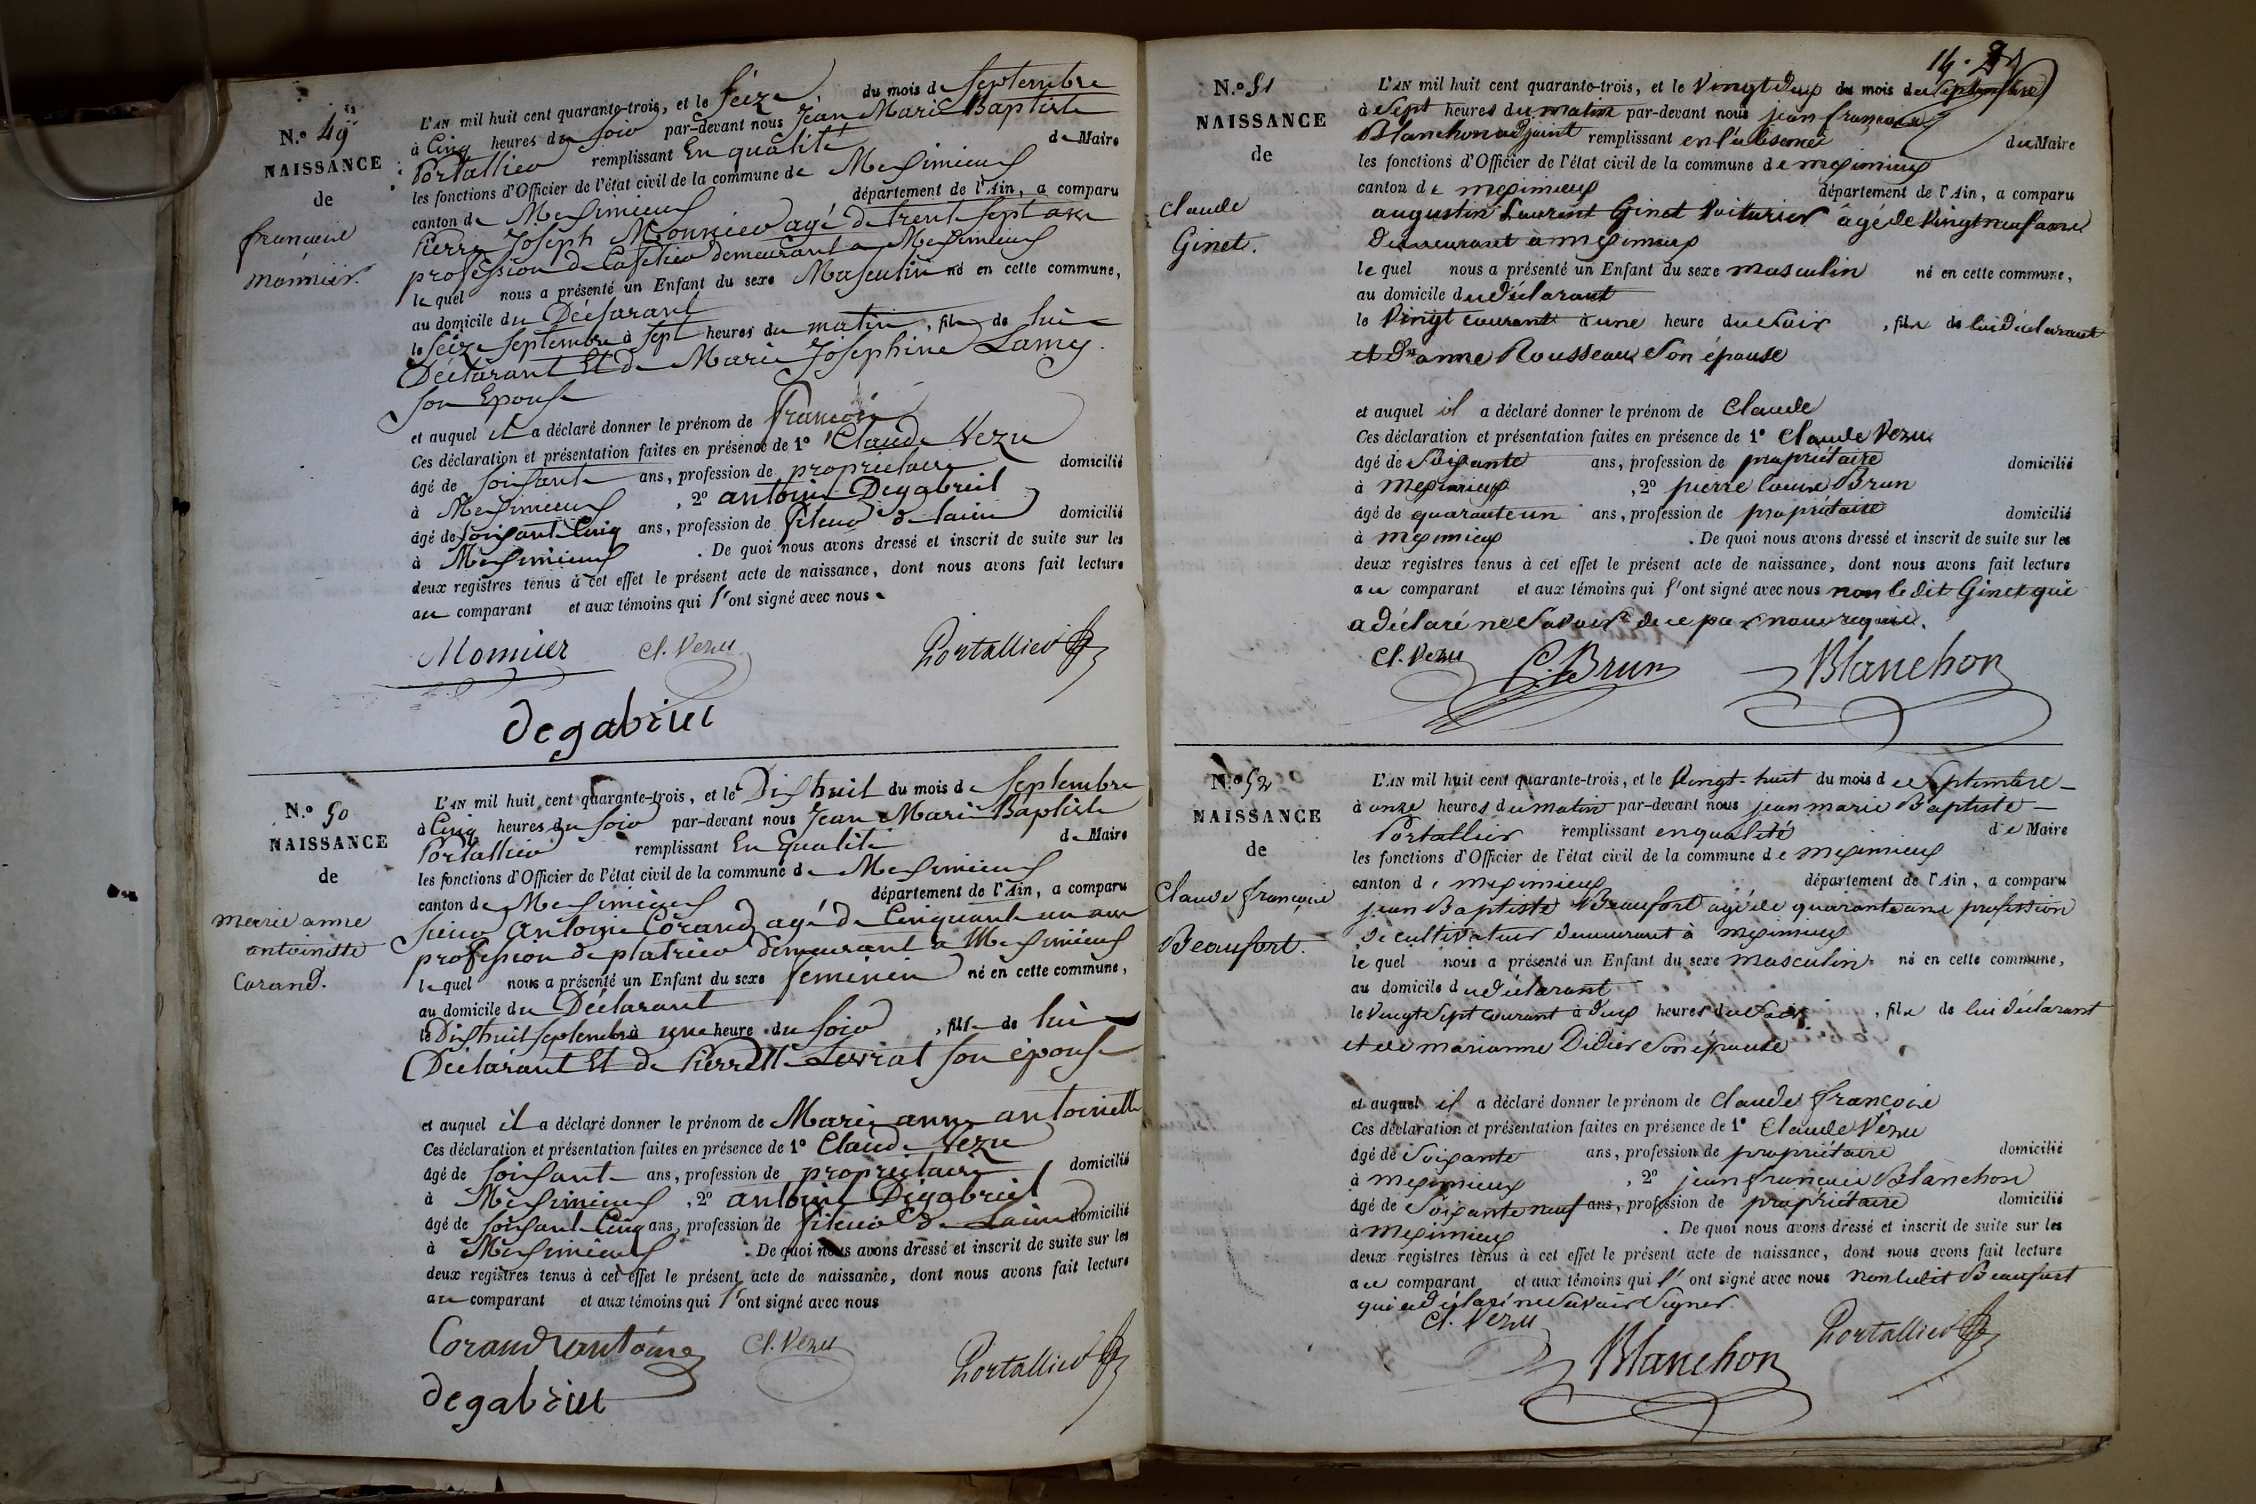 N.º 49
NAISSANCE
de
françois
monnier.
L'AN mil huit cent quarante-trois, et le Seize du mois de Septembre
à Cinq heures du Soir par-devant nous Jean Marie Baptiste
Portallier remplissant En qualité de Maire
les fonctions d'Officier de l'état civil de la commune de Meximieux
canton de Meximieux département de l'Ain, a comparu
Pierre Joseph Monnier agé de trent Sept ans
profession de Cafetier demeurant a Meximieux
le quel nous a présenté un Enfant du sexe Masculin né en cette commune,
au domicile du Déclarant
le Seize Septembre à Sept heures du matin, fils de lui
Déclarant Et de Marie Joséphine Lamy
Son Epouse
et auquel il a déclaré donner le prénom de françois
Ces déclaration et présentation faites en présence de 1º Claude Vezu
âgé de Soixante ans, profession de propriétaire domicilié
à Meximieux, 2º antoine Degabriel
âgé de Soixant Cinq ans, profession de fileur de laine domicilié
à Meximieux. De quoi nous avons dressé et inscrit de suite sur les
deux registres tenus à cet effet le présent acte de naissance, dont nous avons fait lecture
au comparant et aux témoins qui l'ont signé avec nous
Monnier Cl. Vezu Portallier
degabriel
N.º 50
NAISSANCE
de
marie anne
antoinette
Corand.
L'AN mil huit cent quarante-trois, et le Dix huit du mois de Septembre
à Cinq heures du Soir par-devant nous Jean Marie Baptiste
Portallier remplissant En qualité de Maire
les fonctions d'Officier de l'état civil de la commune de Meximieux
canton de Meximieux département de l'Ain, a comparu
Sieur Antoine Corand agé de Cinquante un ans
profession de platrier demeurant a Meximieux
le quel nous a présenté un Enfant du sexe feminin né en cette commune,
au domicile du Déclarant
le Dix huit Septembre à une heure du Soir, fille de lui
Déclarant Et de Pierrette Levrat Son épouse
et auquel il a déclaré donner le prénom de Marie anne antoinette
Ces déclaration et présentation faites en présence de 1º Claude Vezu
âgé de Soixante ans, profession de propriétaire domicilié
à Meximieux, 2º antoine Degabriel
âgé de Soixant Cinq ans, profession de fileur de Laine domicilié
à Meximieux. De quoi nous avons dressé et inscrit de suite sur les
deux registres tenus à cet effet le présent acte de naissance, dont nous avons fait lecture
au comparant et aux témoins qui l'ont signé avec nous
Corand antoine Cl. Vezu Portallier
degabriel
14.
N.º 51
NAISSANCE
de
Claude
Ginet.
L'AN mil huit cent quarante-trois, et le Vingt deux du mois de Septembre
à Sept heures du matin par-devant nous jean françois
Blanchon adjoint remplissant en l'absence du Maire
les fonctions d'Officier de l'état civil de la commune de meximieux
canton de meximieux département de l'Ain, a comparu
augustin Laurent Ginet Voiturier âgé de Vingt neuf ans
demeurant à meximieux
le quel nous a présenté un Enfant du sexe masculin né en cette commune,
au domicile du déclarant
le Vingt courant à une heure du Soir, fils de lui déclarant
et d'anne Rousseau Son épouse
et auquel il a déclaré donner le prénom de Claude
Ces déclaration et présentation faites en présence de 1º Claude Vezu
âgé de Soixante ans, profession de propriétaire domicilié
à meximieux, 2º pierre louis Brun
âgé de quarante un ans, profession de propriétaire domicilié
à meximieux. De quoi nous avons dressé et inscrit de suite sur les
deux registres tenus à cet effet le présent acte de naissance, dont nous avons fait lecture
au comparant et aux témoins qui l'ont signé avec nous non le dit Ginet qui
a déclaré ne Savoir de ce par nous requis.
Cl. Vezu Brun Blanchon
N.º 52
NAISSANCE
de
Claude françois
Beaufort.
L'AN mil huit cent quarante-trois, et le Vingt-huit du mois de Septembre
à onze heures du matin par-devant nous jean marie Baptiste
Portallier remplissant en qualité de Maire
les fonctions d'Officier de l'état civil de la commune de meximieux
canton de meximieux département de l'Ain, a comparu
jean Baptiste Beaufort agé de quarante ans profession
de cultivateur demeurant à meximieux
le quel nous a présenté un Enfant du sexe masculin né en cette commune,
au domicile du déclarant
le Vingt Sept courant à deux heures du Soir, fils de lui déclarant
et de marianne Didier Son épouse
et auquel il a déclaré donner le prénom de Claude françois
Ces déclaration et présentation faites en présence de 1º Claude Vezu
âgé de Soixante ans, profession de propriétaire domicilié
à meximieux, 2º jean françois Blanchon
âgé de Soixante neuf ans, profession de propriétaire domicilié
à meximieux. De quoi nous avons dressé et inscrit de suite sur les
deux registres tenus à cet effet le présent acte de naissance, dont nous avons fait lecture
au comparant et aux témoins qui l'ont signé avec nous non ledit Beaufort
qui a déclaré ne Savoir Signer.
Cl. Vezu Blanchon Portallier